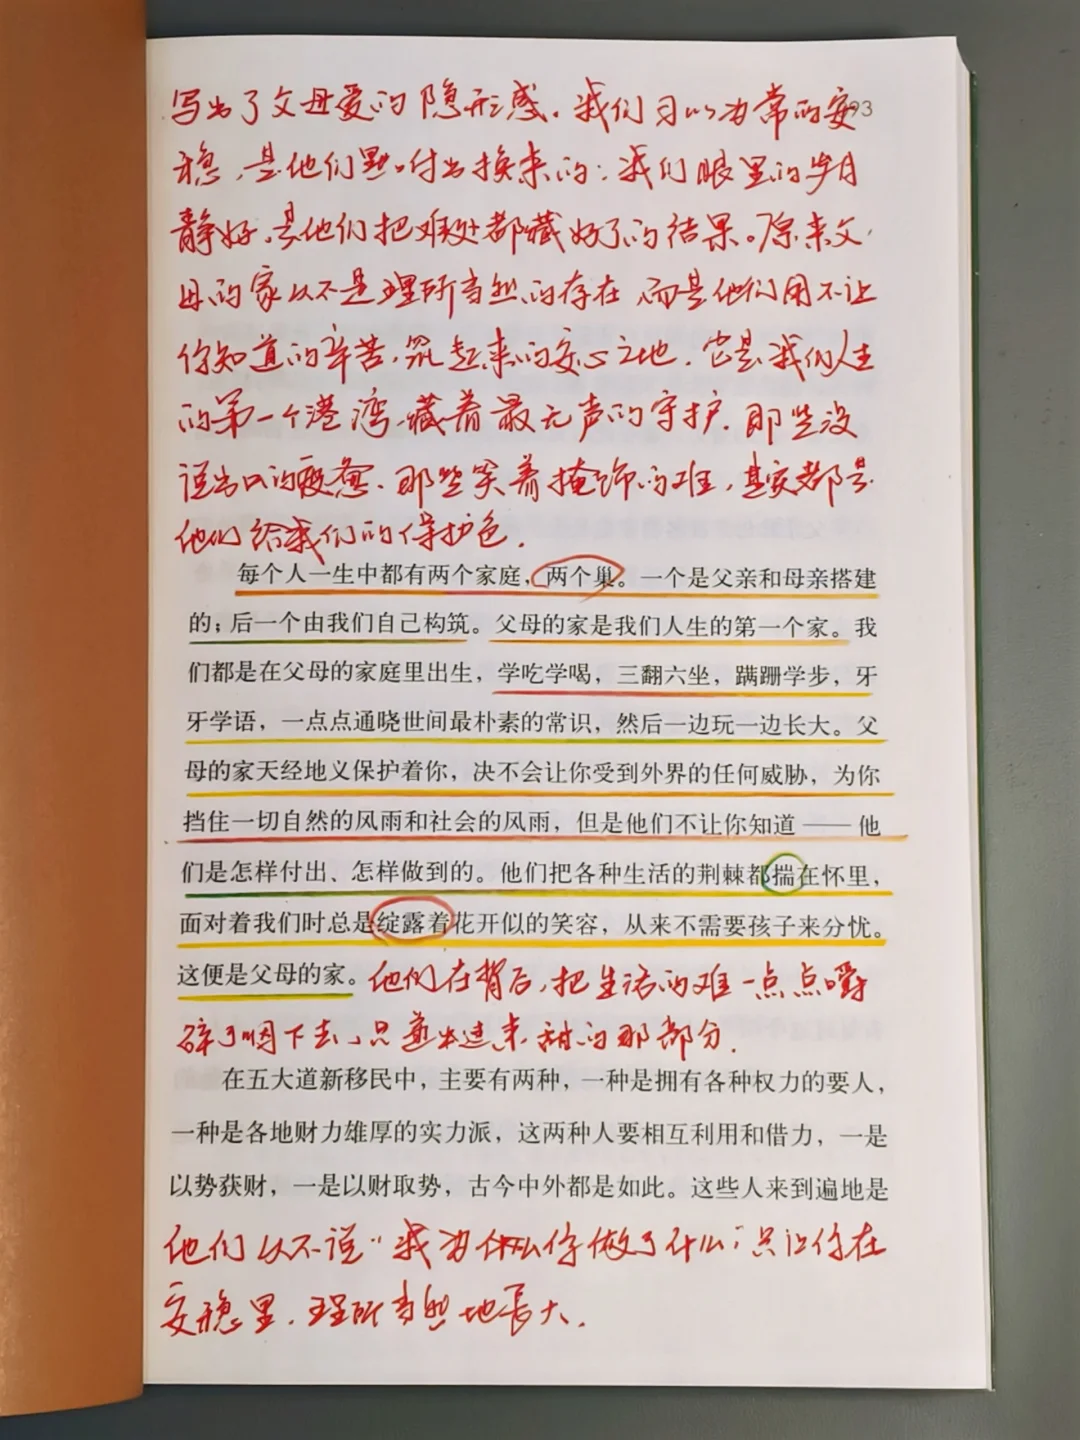 93
写出了父母爱的隐形感。我们习以为常的安
稳,是他们默默付出换来的;我们眼里的岁月
静好,是他们把难处都藏好了的结果。原来父
母的家从不是理所当然的存在,而是他们用不让
你知道的辛苦,筑起来的安心之地。它是我们人生
的第一个港湾,藏着最无声的守护。那些没
说出口的疲惫、那些笑着掩饰的难,其实都是
他们给我们的保护色。
每个人一生中都有两个家庭,两个巢。一个是父亲和母亲搭建
的;后一个由我们自己构筑。父母的家是我们人生的第一个家。我
们都是在父母的家庭里出生,学吃学喝,三翻六坐,蹒跚学步,牙
牙学语,一点点通晓世间最朴素的常识,然后一边玩一边长大。父
母的家天经地义保护着你,决不会让你受到外界的任何威胁,为你
挡住一切自然的风雨和社会的风雨,但是他们不让你知道——他
们是怎样付出、怎样做到的。他们把各种生活的荆棘都揣在怀里,
面对着我们时总是绽露着花开似的笑容,从来不需要孩子来分忧。
这便是父母的家。他们在背后,把生活的难一点点嚼
碎了咽下去,只递出甜的那部分.
在五大道新移民中,主要有两种,一种是拥有各种权力的要人,
一种是各地财力雄厚的实力派,这两种人要相互利用和借力,一是
以势获财,一是以财取势,古今中外都是如此。这些人来到遍地是
他们从不说“我为你做了什么”,只让你在
安稳里,理所当然地长大.